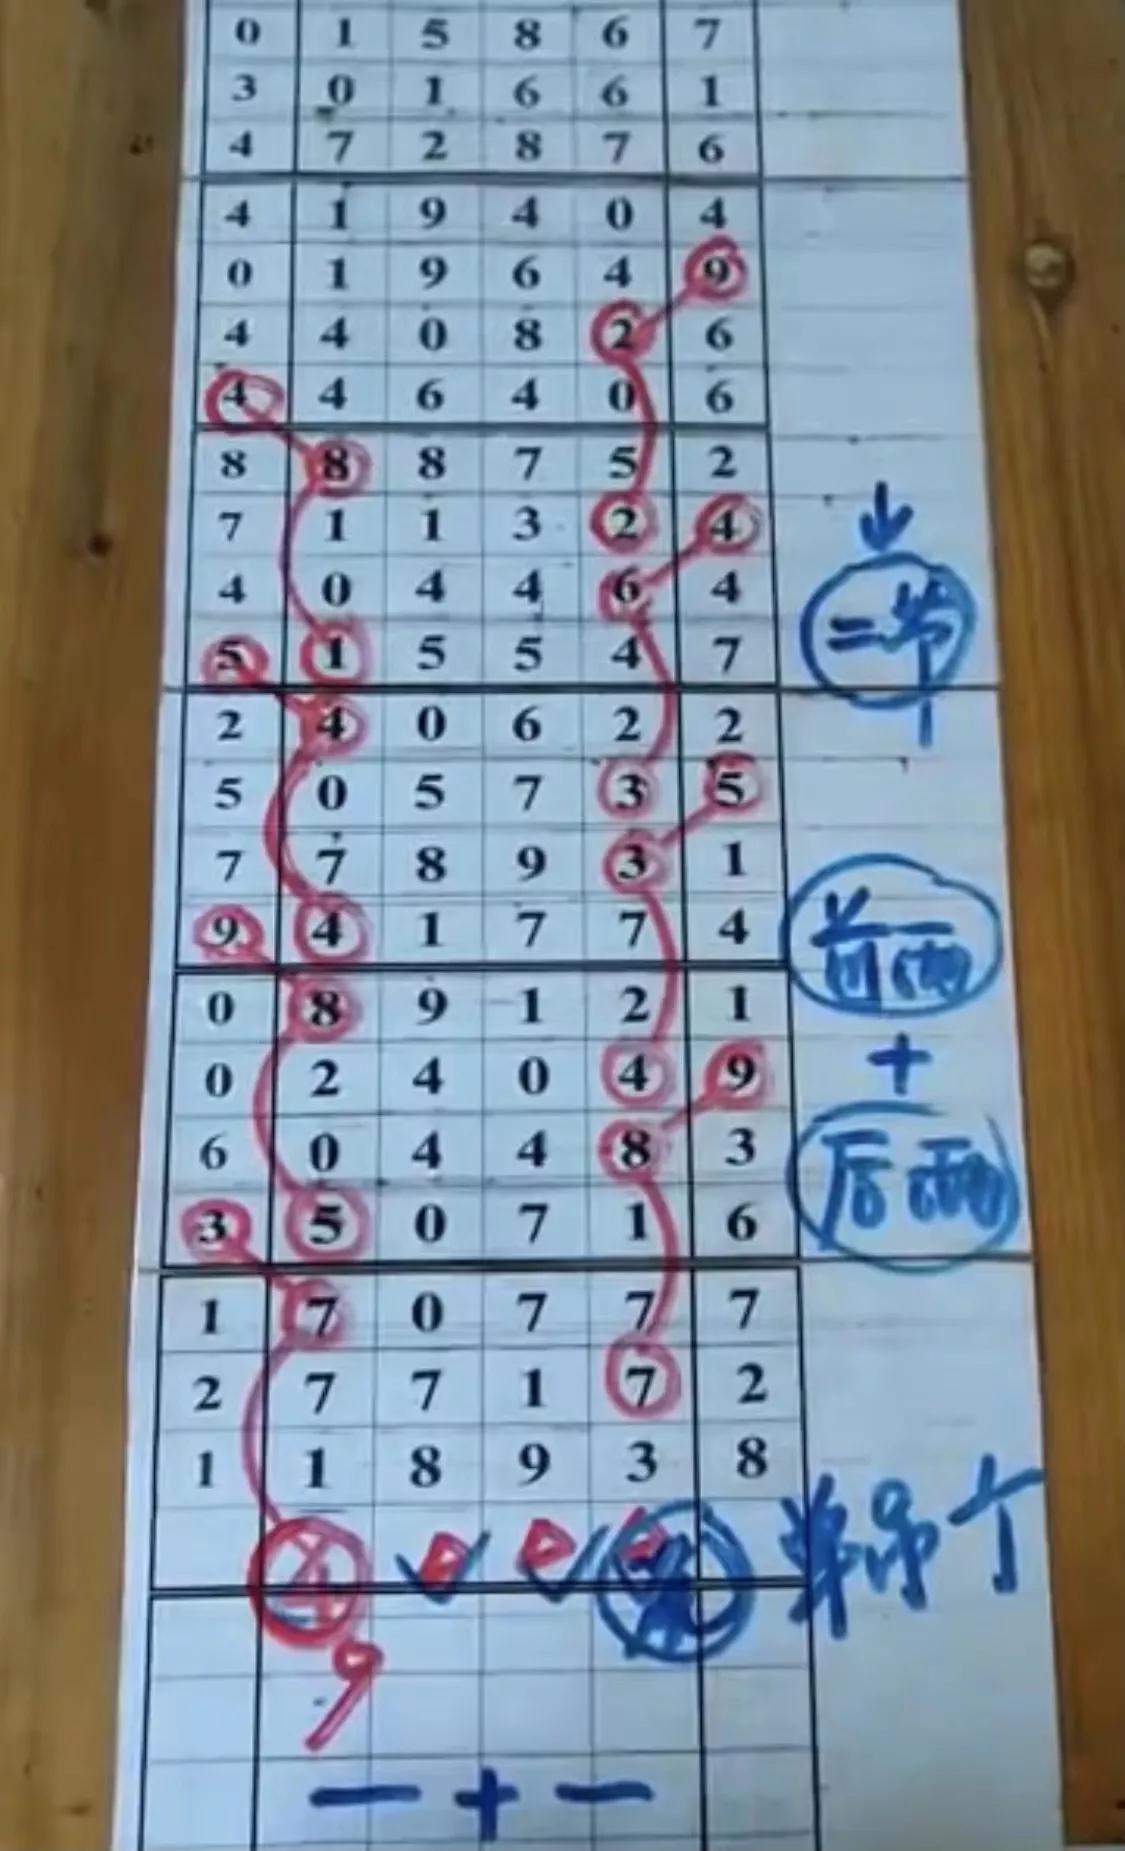 0 1 5 8 6 7
3 0 1 6 6 1
4 7 2 8 7 6
4 1 9 4 0 4
0 1 9 6 4 9
4 4 0 8 2 6
4 4 6 4 0 6
8 8 8 7 5 2
7 1 1 3 2 4
4 0 4 4 6 4
二节
5 1 5 5 4 7
2 4 0 6 2 2
5 0 5 7 3 5
7 7 8 9 3 1
9 4 1 7 7 4
前两
0 8 9 1 2 1
0 2 4 0 4 9
+
6 0 4 4 8 3
后两
3 5 0 7 1 6
1 7 0 7 7 7
2 7 7 1 7 2
1 1 8 9 3 8
单吊个
9
一+一